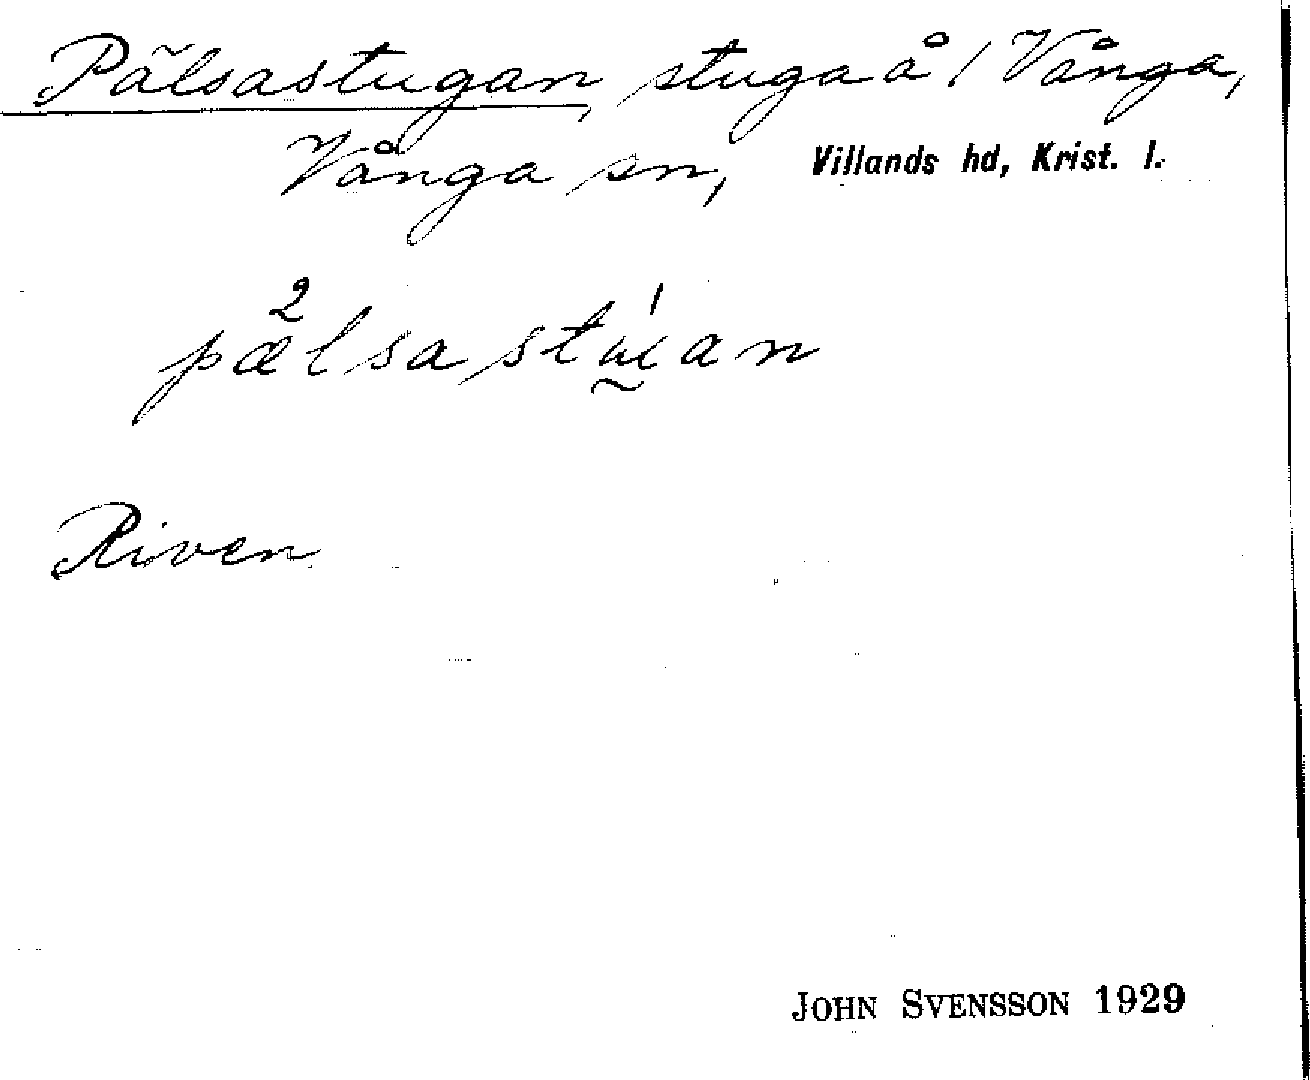 Pälsastugan, stuga å 1 Vånga,
Vånga sn, Villands hd, Krist. l.
Riven
JOHN SVENSSON 1929